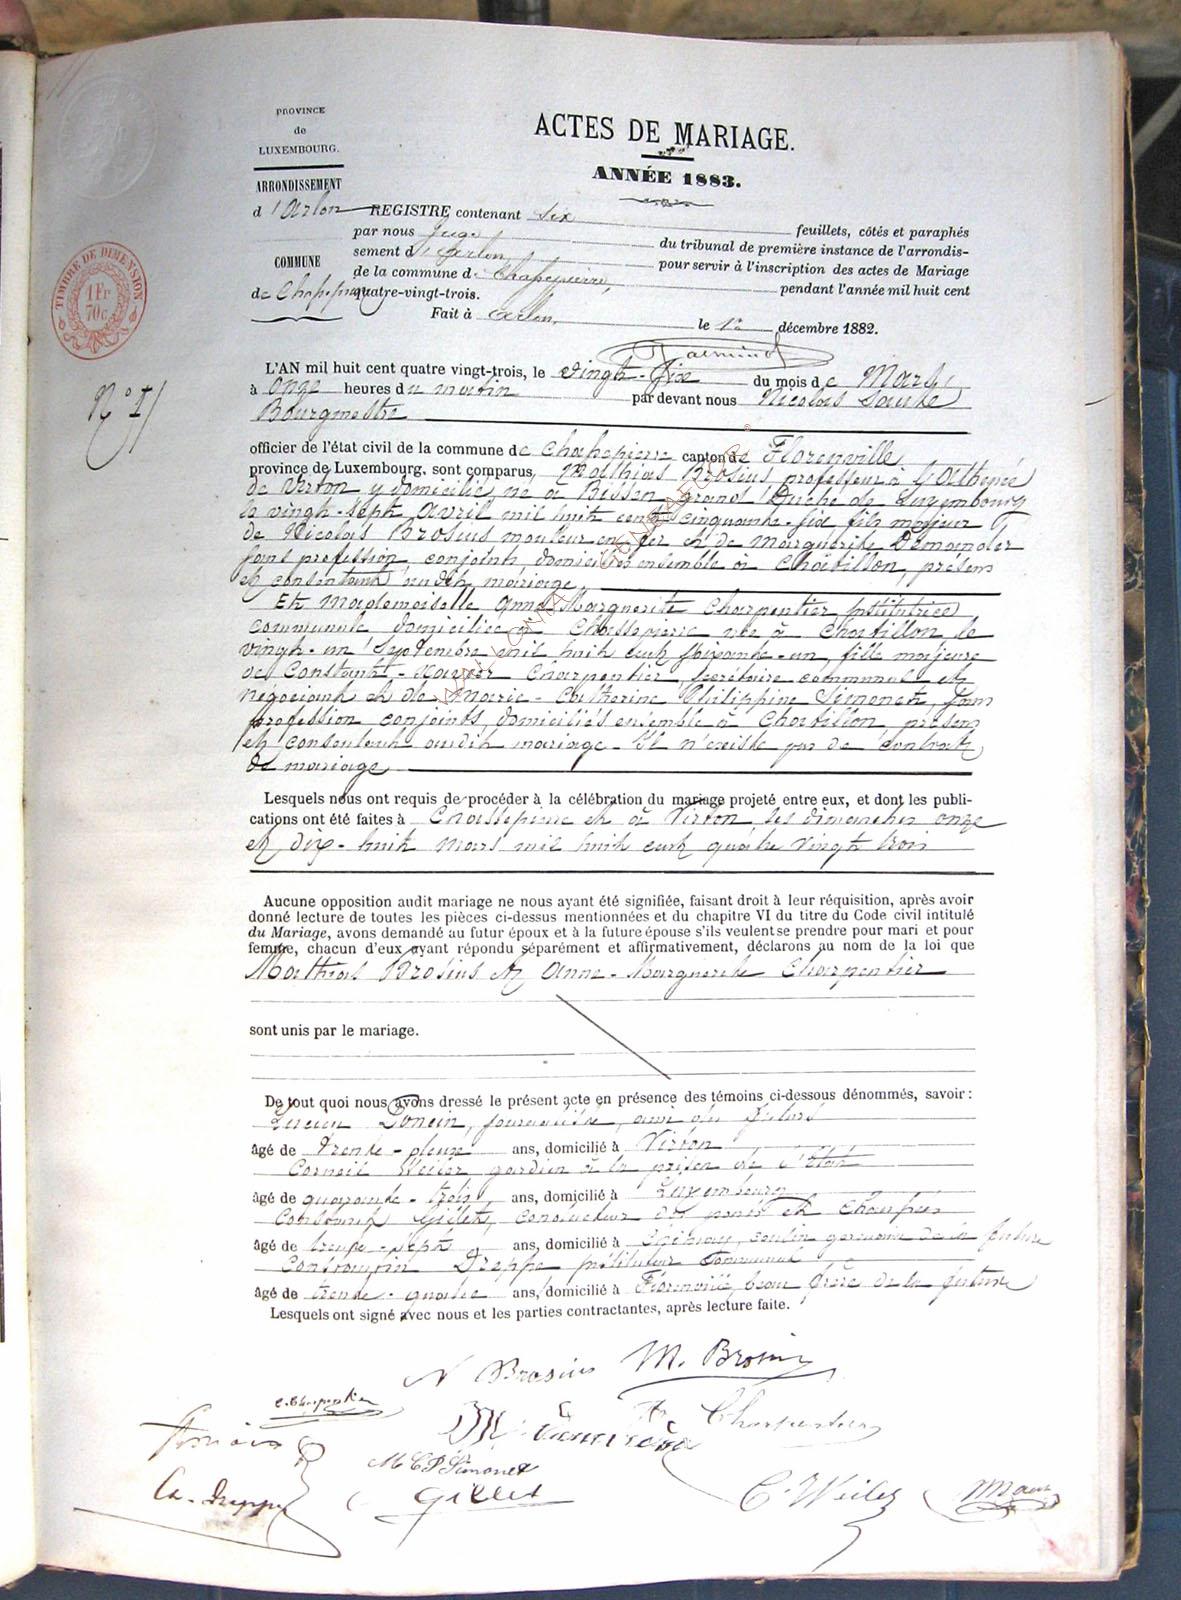 PROVINCE
de
LUXEMBOURG.
ARRONDISSEMENT
d'Arlon
COMMUNE
de Chassepierre
TIMBRE DE DIMENSION
1 Fr
70 c.
N° 1
ACTES DE MARIAGE.
ANNÉE 1883.
REGISTRE contenant six feuillets, côtés et paraphés
par nous Juge du tribunal de première instance de l'arrondis-
sement d'Arlon pour servir à l'inscription des actes de Mariage
de la commune de Chassepierre, pendant l'année mil huit cent
quatre-vingt-trois.
Fait à Arlon, le 1er décembre 1882.
L'AN mil huit cent quatre vingt-trois, le vingt-six du mois de Mars
à onze heures du matin par devant nous Nicolas
Bourgmestre
officier de l'état civil de la commune de Chassepierre canton de Florenville
province de Luxembourg, sont comparus, Mathias Brosius, professeur à l'Athénée
de Virton y domicilié, né à Bissen grand Duché de Luxembourg
le vingt-sept avril mil huit cent cinquante-six fils majeur
de Nicolas Brosius mouleur en fer et de Marguerite
sans profession, conjoints, domiciliés ensemble à Châtillon, présens
et consentant audit mariage.
Et Mademoiselle Anne-Marguerite Charpentier Institutrice
communale domiciliée à Chassepierre née à Chatillon le
vingt-un Septembre mil huit cent soixante-un, fille majeure
de Constant-Xavier Charpentier, secrétaire communal et
négociant et de Marie-Catherine Philippine Simonet, sans
profession conjoints, domiciliés ensemble à Chatillon, présens
et consentant audit mariage. Il n'existe pas de contrat
de mariage
Lesquels nous ont requis de procéder à la célébration du mariage projeté entre eux, et dont les publi-
cations ont été faites à Chassepierre et à Virton les dimanches onze
et dix-huit mars mil huit cent quatre vingt trois
Aucune opposition audit mariage ne nous ayant été signifiée, faisant droit à leur réquisition, après avoir
donné lecture de toutes les pièces ci-dessus mentionnées et du chapitre VI du titre du Code civil intitulé
du Mariage, avons demandé au futur époux et à la future épouse s'ils veulent se prendre pour mari et pour
femme, chacun d'eux ayant répondu séparément et affirmativement, déclarons au nom de la loi que
Mathias Brosius et Anne-Marguerite Charpentier
sont unis par le mariage.
De tout quoi nous avons dressé le présent acte en présence des témoins ci-dessous dénommés, savoir :
ami du futur
âgé de trente-deux ans, domicilié à Virton
Corneil Weiler gardien à la prison de l'état
âgé de quarante-trois, ans, domicilié à Luxembourg
Constant Gillet, conducteur des ponts et chaussées
âgé de trente-sept ans, domicilié à cousin germain de la future
Drappe instituteur communal
âgé de trente-quatre ans, domicilié à Florenville, beau frère de la future
Lesquels ont signé avec nous et les parties contractantes, après lecture faite.
N Brosius M. Brosius
C. Charpentier
Charpentier
M C P Simonet
Drappe
Gillet
C. Weiler